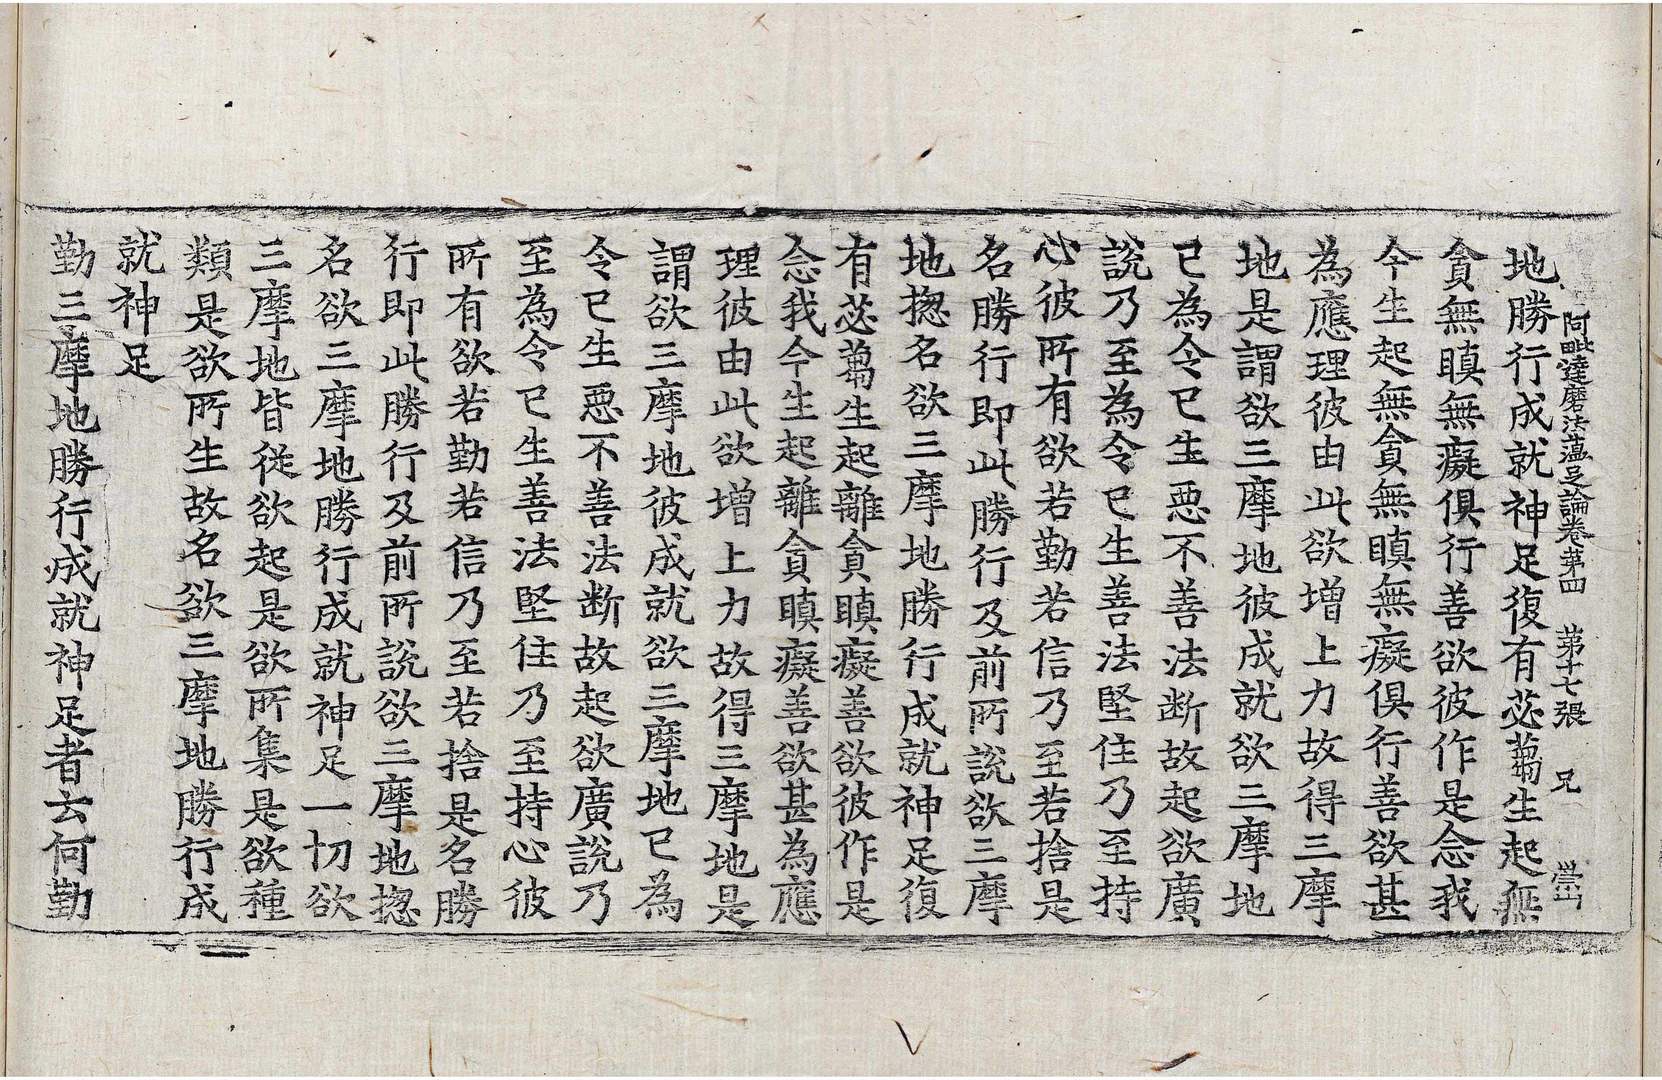 阿毗達磨法蘊足論卷第四 第十七張 兄
地勝行成就神足復有苾蒭生起無
貪無瞋無癡俱行善欲彼作是念我
今生起無貪無瞋無癡俱行善欲甚
為應理彼由此欲增上力故得三摩
地是謂欲三摩地彼成就欲三摩地
已為令已生惡不善法斷故起欲廣
說乃至為令已生善法堅住乃至持
心彼所有欲若勤若信乃至若捨是
名勝行即此勝行及前所說欲三摩
地揔名欲三摩地勝行成就神足復
有苾蒭生起離貪瞋癡善欲彼作是
念我今生起離貪瞋癡善欲甚為應
理彼由此欲增上力故得三摩地是
謂欲三摩地彼成就欲三摩地已為
令已生惡不善法斷故起欲廣說乃
至為令已生善法堅住乃至持心彼
所有欲若勤若信乃至若捨是名勝
行即此勝行及前所說欲三摩地揔
名欲三摩地勝行成就神足一切欲
三摩地皆從欲起是欲所集是欲種
類是欲所生故名欲三摩地勝行成
就神足
勤三摩地勝行成就神足者云何勤